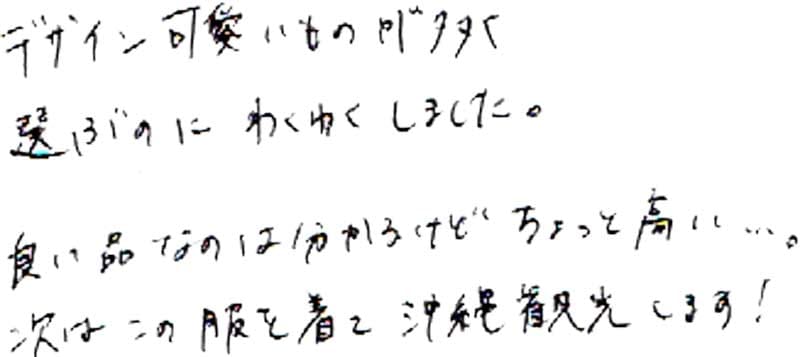 デザイン可愛いものが多く
選ぶのにわくわくしました。
良い品なのは分かるけどちょっと高い…。
次はこの服を着て沖縄観光します！